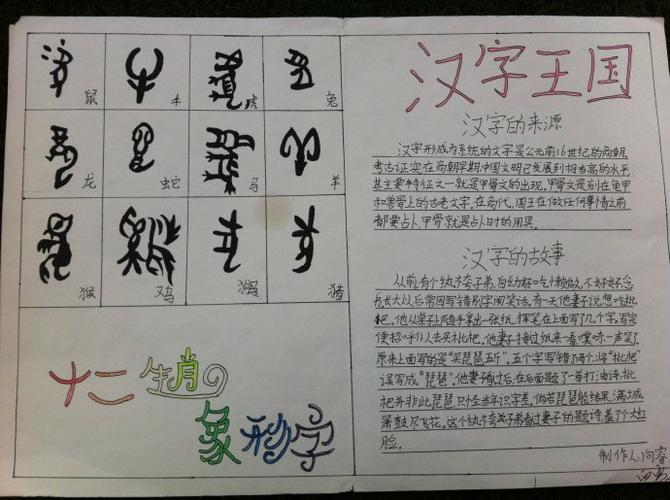 鼠 牛 虎 兔
龙 蛇 马 羊
猴 鸡 猪
十二生肖
象形字
汉字王国
汉字的来源
汉字形成为系统的文字是公元前16世纪的商朝,
考古证实在商朝早期,中国文明已发展到相当高的水平,
其主要特征之一就是甲骨文的出现,甲骨文是刻在龟甲
和兽骨上的古老文字,在商代,国王在做任何事情之前
都要占卜,甲骨就是占卜时的用具。
汉字的故事
从前,有个纨绔子弟,自幼好吃懒做,不好好念
书,长大以后常因写错别字闹笑话,有一天他妻子说想吃枇
杷,他从桌子上随手拿出一张纸,挥笔在上面写了几个字,写完
便招呼仆人去买枇杷,他妻子接过纸来一看,噗哧一声笑了,
原来上面写的是“买琵琶五斤”,五个字写错两个,将“枇杷”
误写成“琵琶”,他妻子看过后,在后面题了一首打油诗:枇
杷并非此琵琶,只怪当年识字差,倘若琵琶能结果,满城
箫鼓尽飞花,这个纨绔子弟看过妻子的题诗,羞了个大红
脸。
制作人:向睿